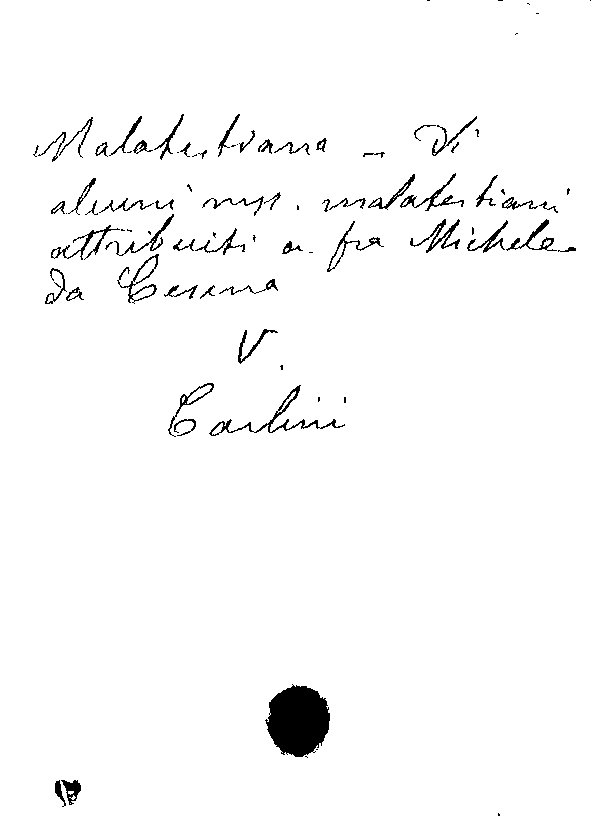 Malatestiana - Di
alcuni mss. malatestiani
attribuiti a fra Michele
da Cesena
V.
Carlini